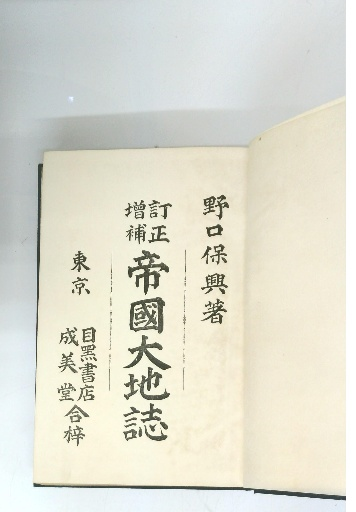 野口保興著
訂正
增補
帝國大地誌
東京
目黑書店
成美堂
合梓